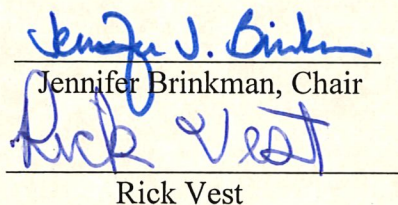 Jennifer J. Brinkman
Jennifer Brinkman, Chair
Rick Vest
Rick Vest